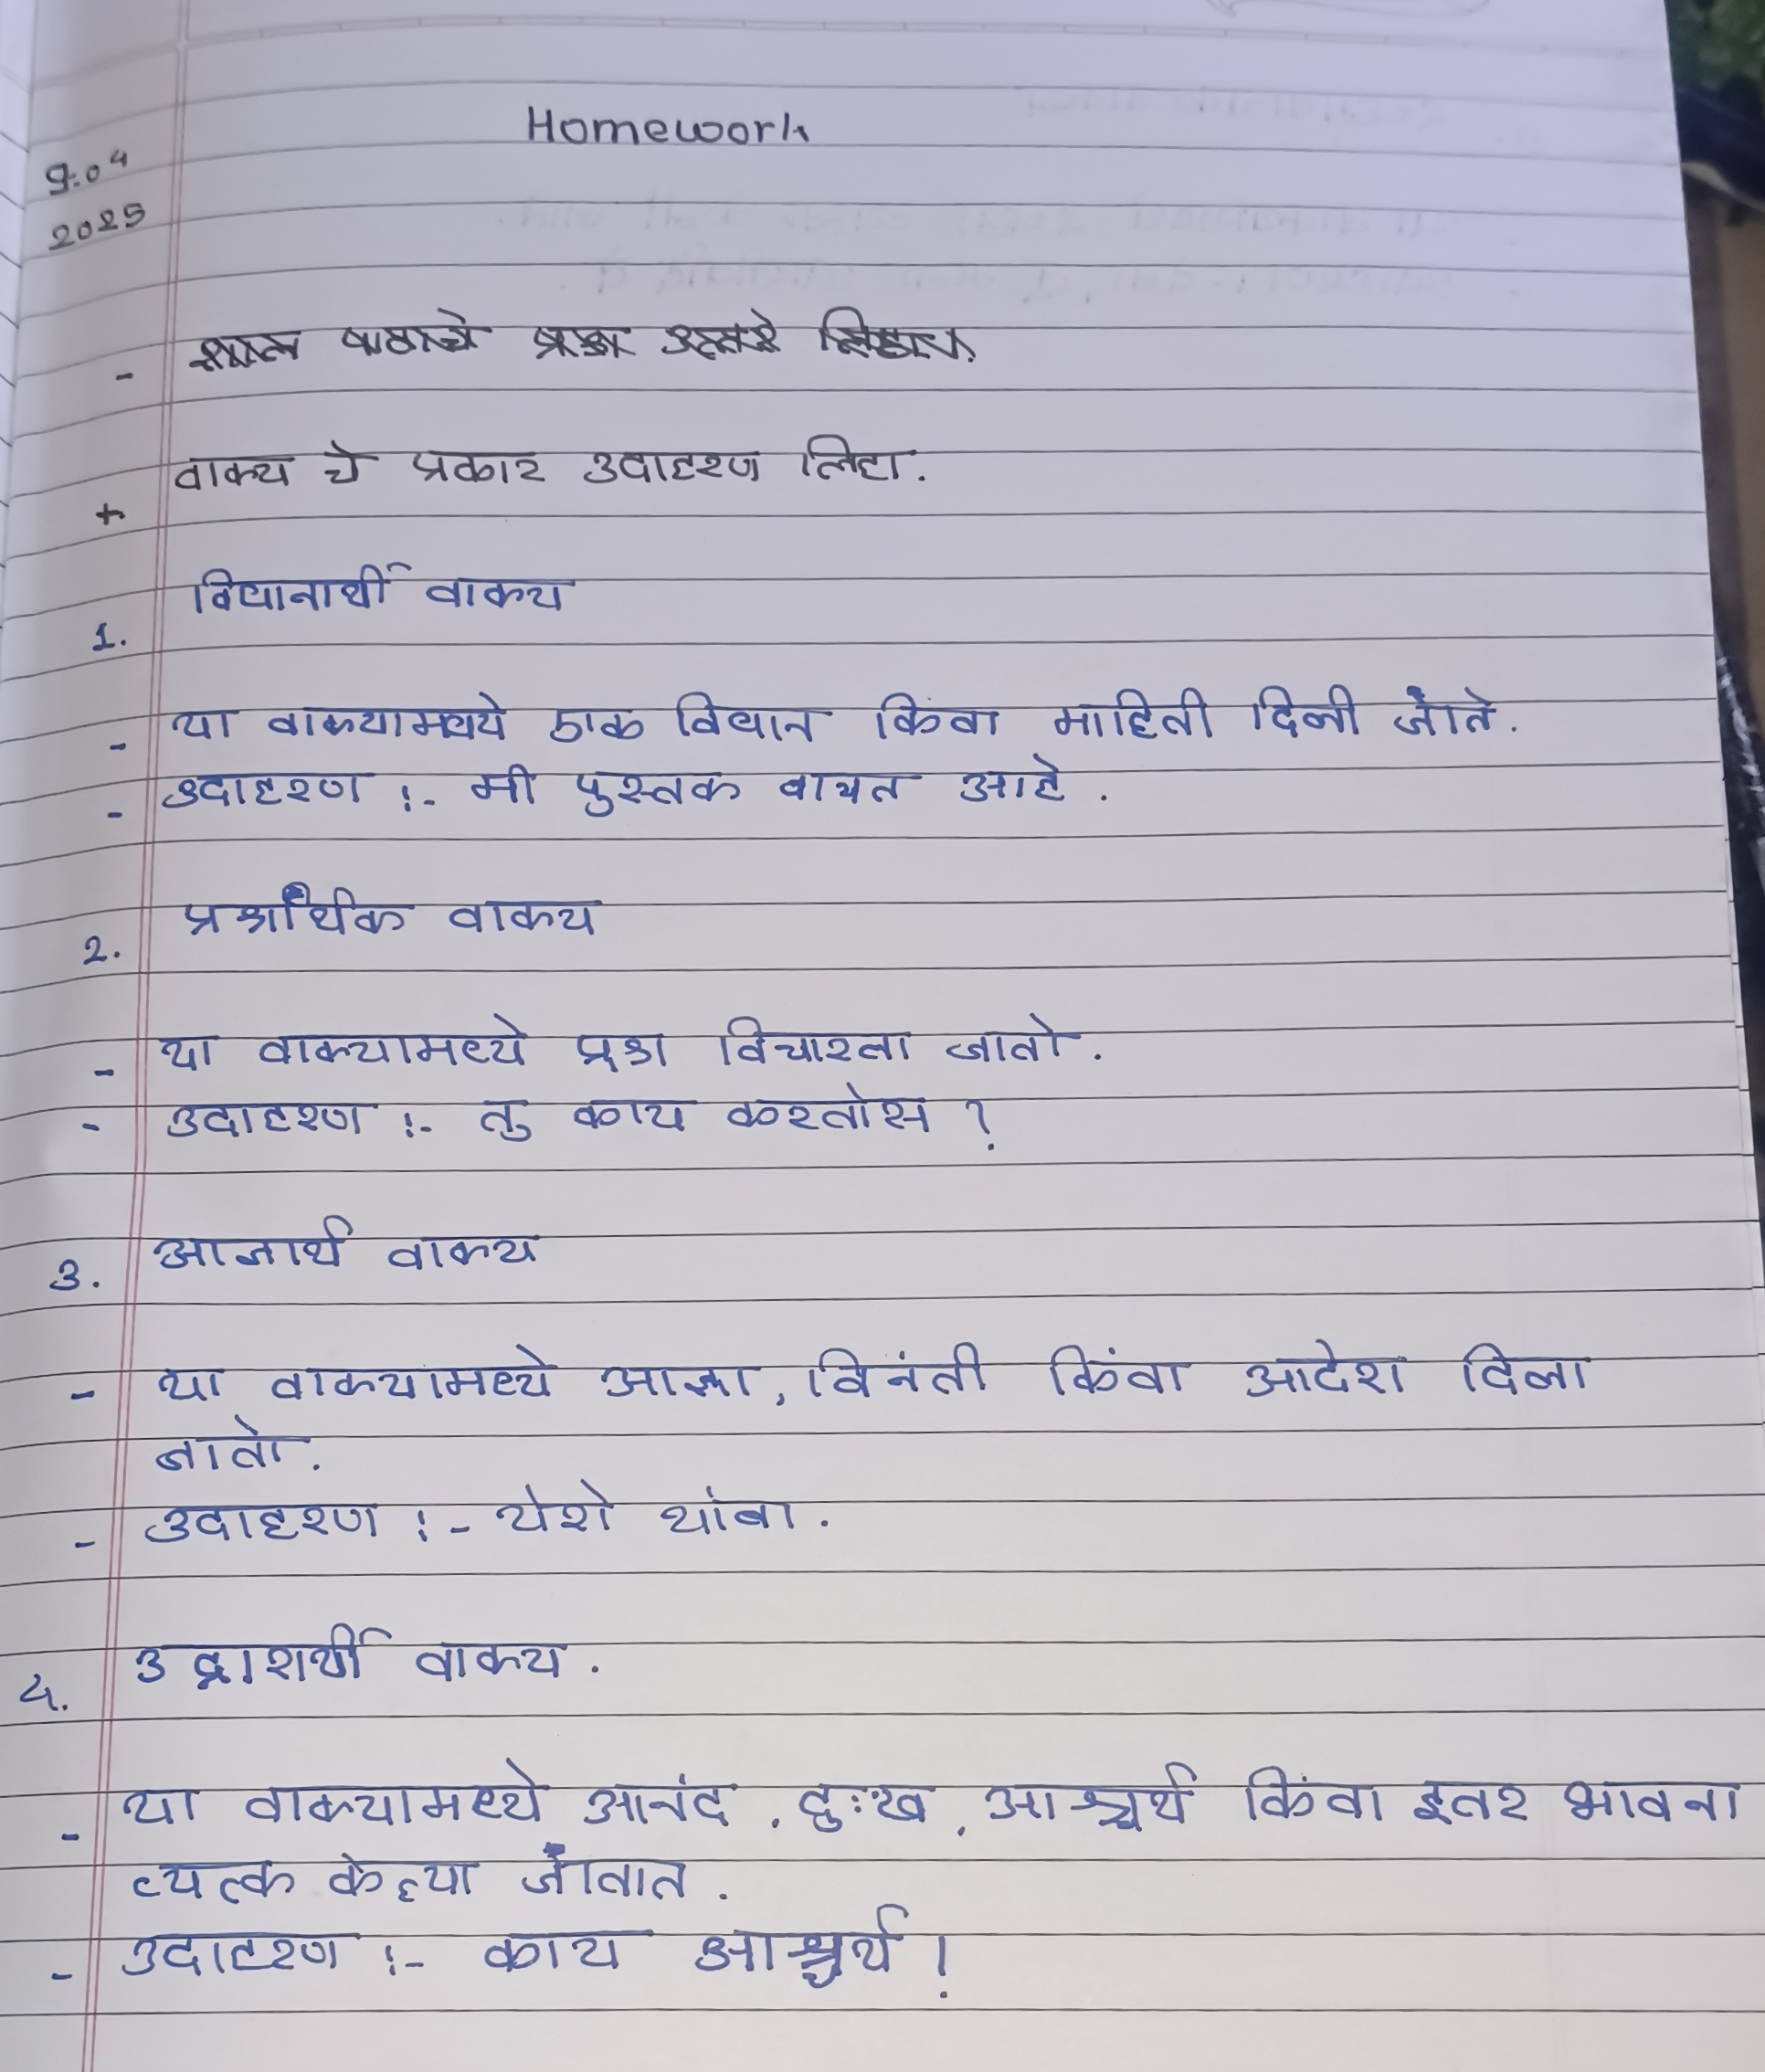 Homework
9.04
2025
- पाठाचे प्रश्न उत्तरे लिहा.
वाक्य चे प्रकार उदाहरण लिहा.
+
विधानार्थी वाक्य
1.
- या वाक्यामध्ये एक विधान किंवा माहिती दिली जाते.
- उदाहरण :- मी पुस्तक वाचत आहे.
प्रश्नार्थिक वाक्य
2.
- या वाक्यामध्ये प्रश्न विचारला जातो.
- उदाहरण :- तु काय करतोस ?
3. आज्ञार्थ वाक्य
- या वाक्यामध्ये आज्ञा, विनंती किंवा आदेश दिला
जातो.
- उदाहरण :- येथे थांबा.
4. उद्गारार्थी वाक्य.
- या वाक्यामध्ये आनंद, दुःख, आश्चर्य किंवा इतर भावना
व्यक्त केल्या जातात.
- उदाहरण :- काय आश्चर्य !